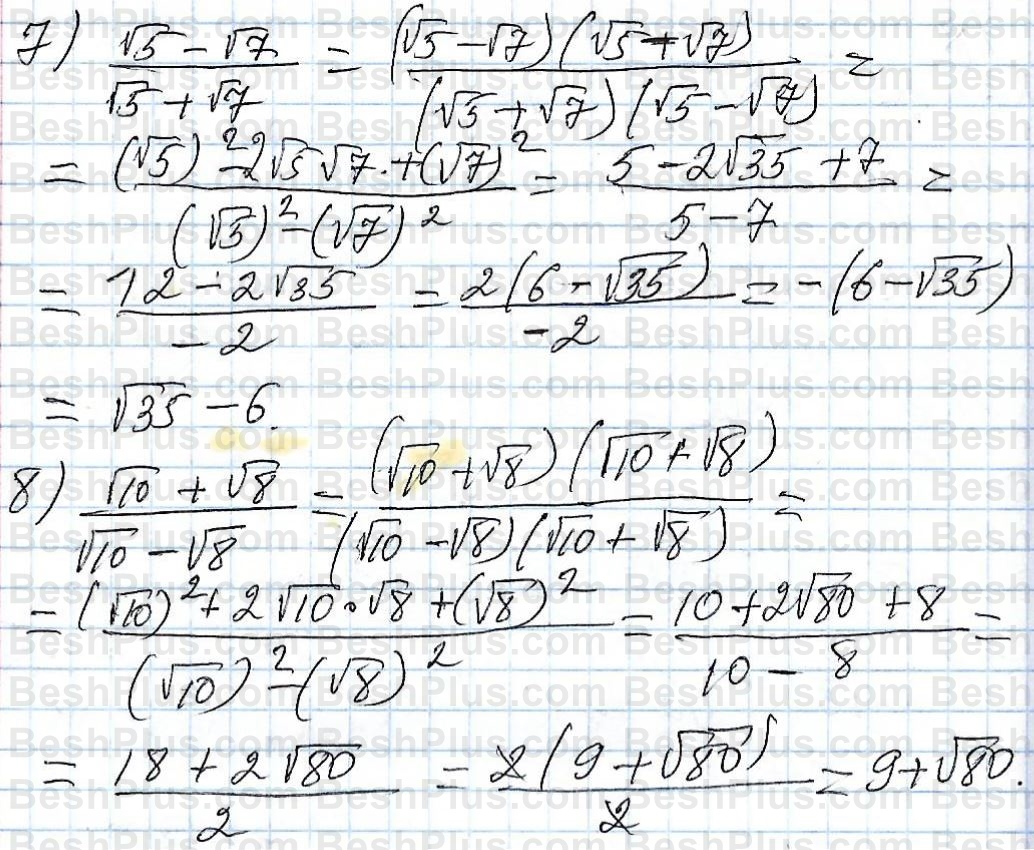 7) (√5 − √7)/(√5 + √7) = ((√5 − √7)(√5 + √7))/((√5 + √7)(√5 − √7)) =
= ((√5)² − 2√5√7 + (√7)²)/((√5)² − (√7)²) = (5 − 2√35 + 7)/(5 − 7) =
= (12 − 2√35)/(−2) = (2(6 − √35))/(−2) = −(6 − √35)
= √35 − 6.
8) (√10 + √8)/(√10 − √8) = ((√10 + √8)(√10 + √8))/((√10 − √8)(√10 + √8)) =
= ((√10)² + 2√10·√8 + (√8)²)/((√10)² − (√8)²) = (10 + 2√80 + 8)/(10 − 8) =
= (18 + 2√80)/2 = (2(9 + √80))/2 = 9 + √80.
BeshPlus.com